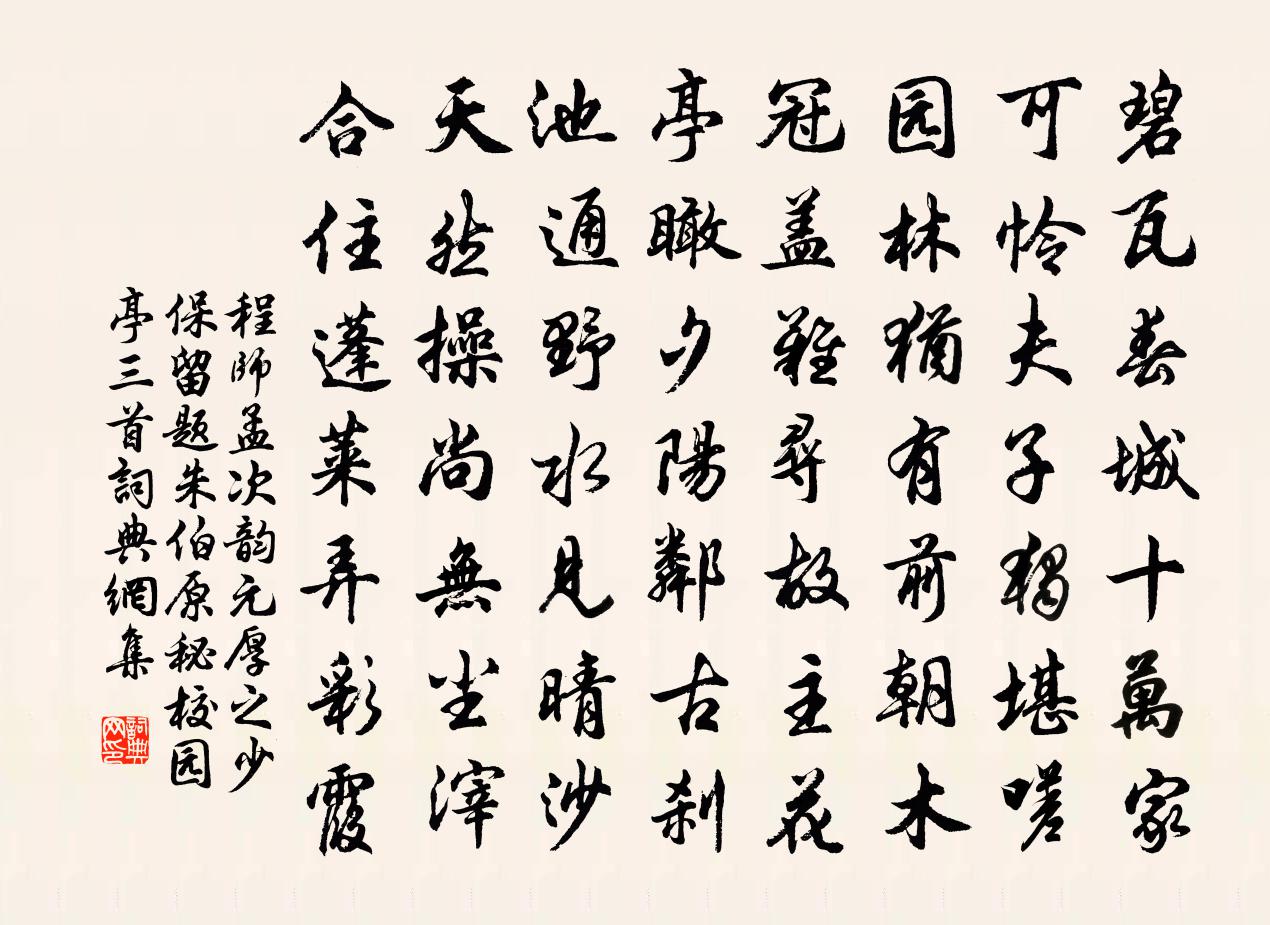 碧瓦春城十萬家
可怜夫子獨堪嗟
园林猶有前朝木
冠盖難尋故主花
亭瞰夕陽鄰古刹
池通野水見晴沙
天然操尚無尘滓
合住蓬萊弄彩霞
程師孟次韵元厚之少
保留题朱伯原秘校园
亭三首詞典網集
詞典网印